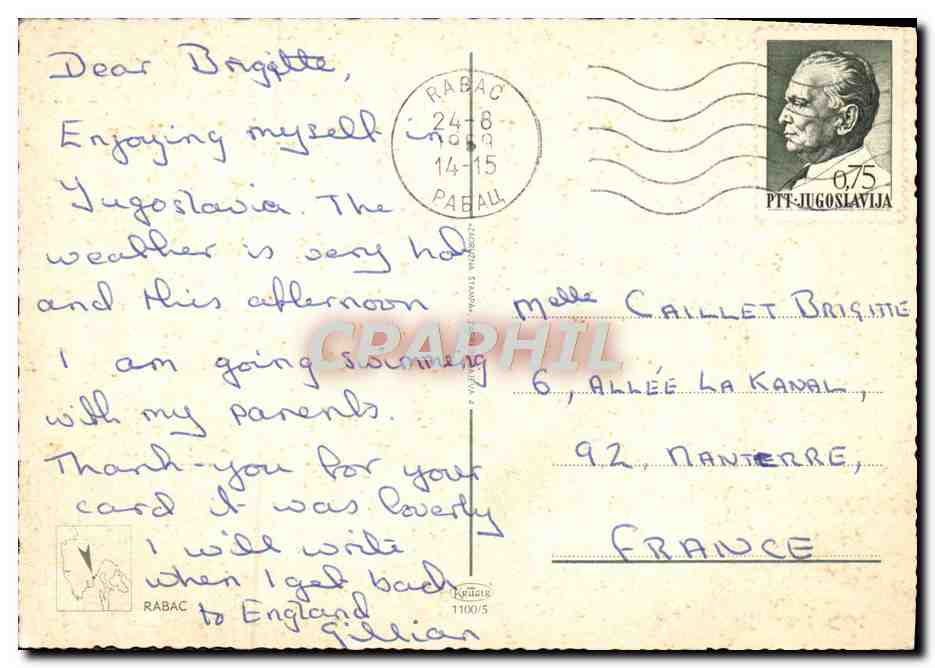 Dear Brigitte,
Enjoying myself in
Yugoslavia. The
weather is very hot
and this afternoon
I am going swimming
with my parents.
Thank-you for your
card it was loverly
I will write
when I get back
to England
Gillian
RABAC
RABAC
24-8
1969
14-15
РАБАЦ
0,75
PTT·JUGOSLAVIJA
Melle CAILLET BRIGITTE
6, ALLÉE LA KANAL,
92, NANTERRE,
FRANCE
KRÜGER
1100/5
CPARHIL